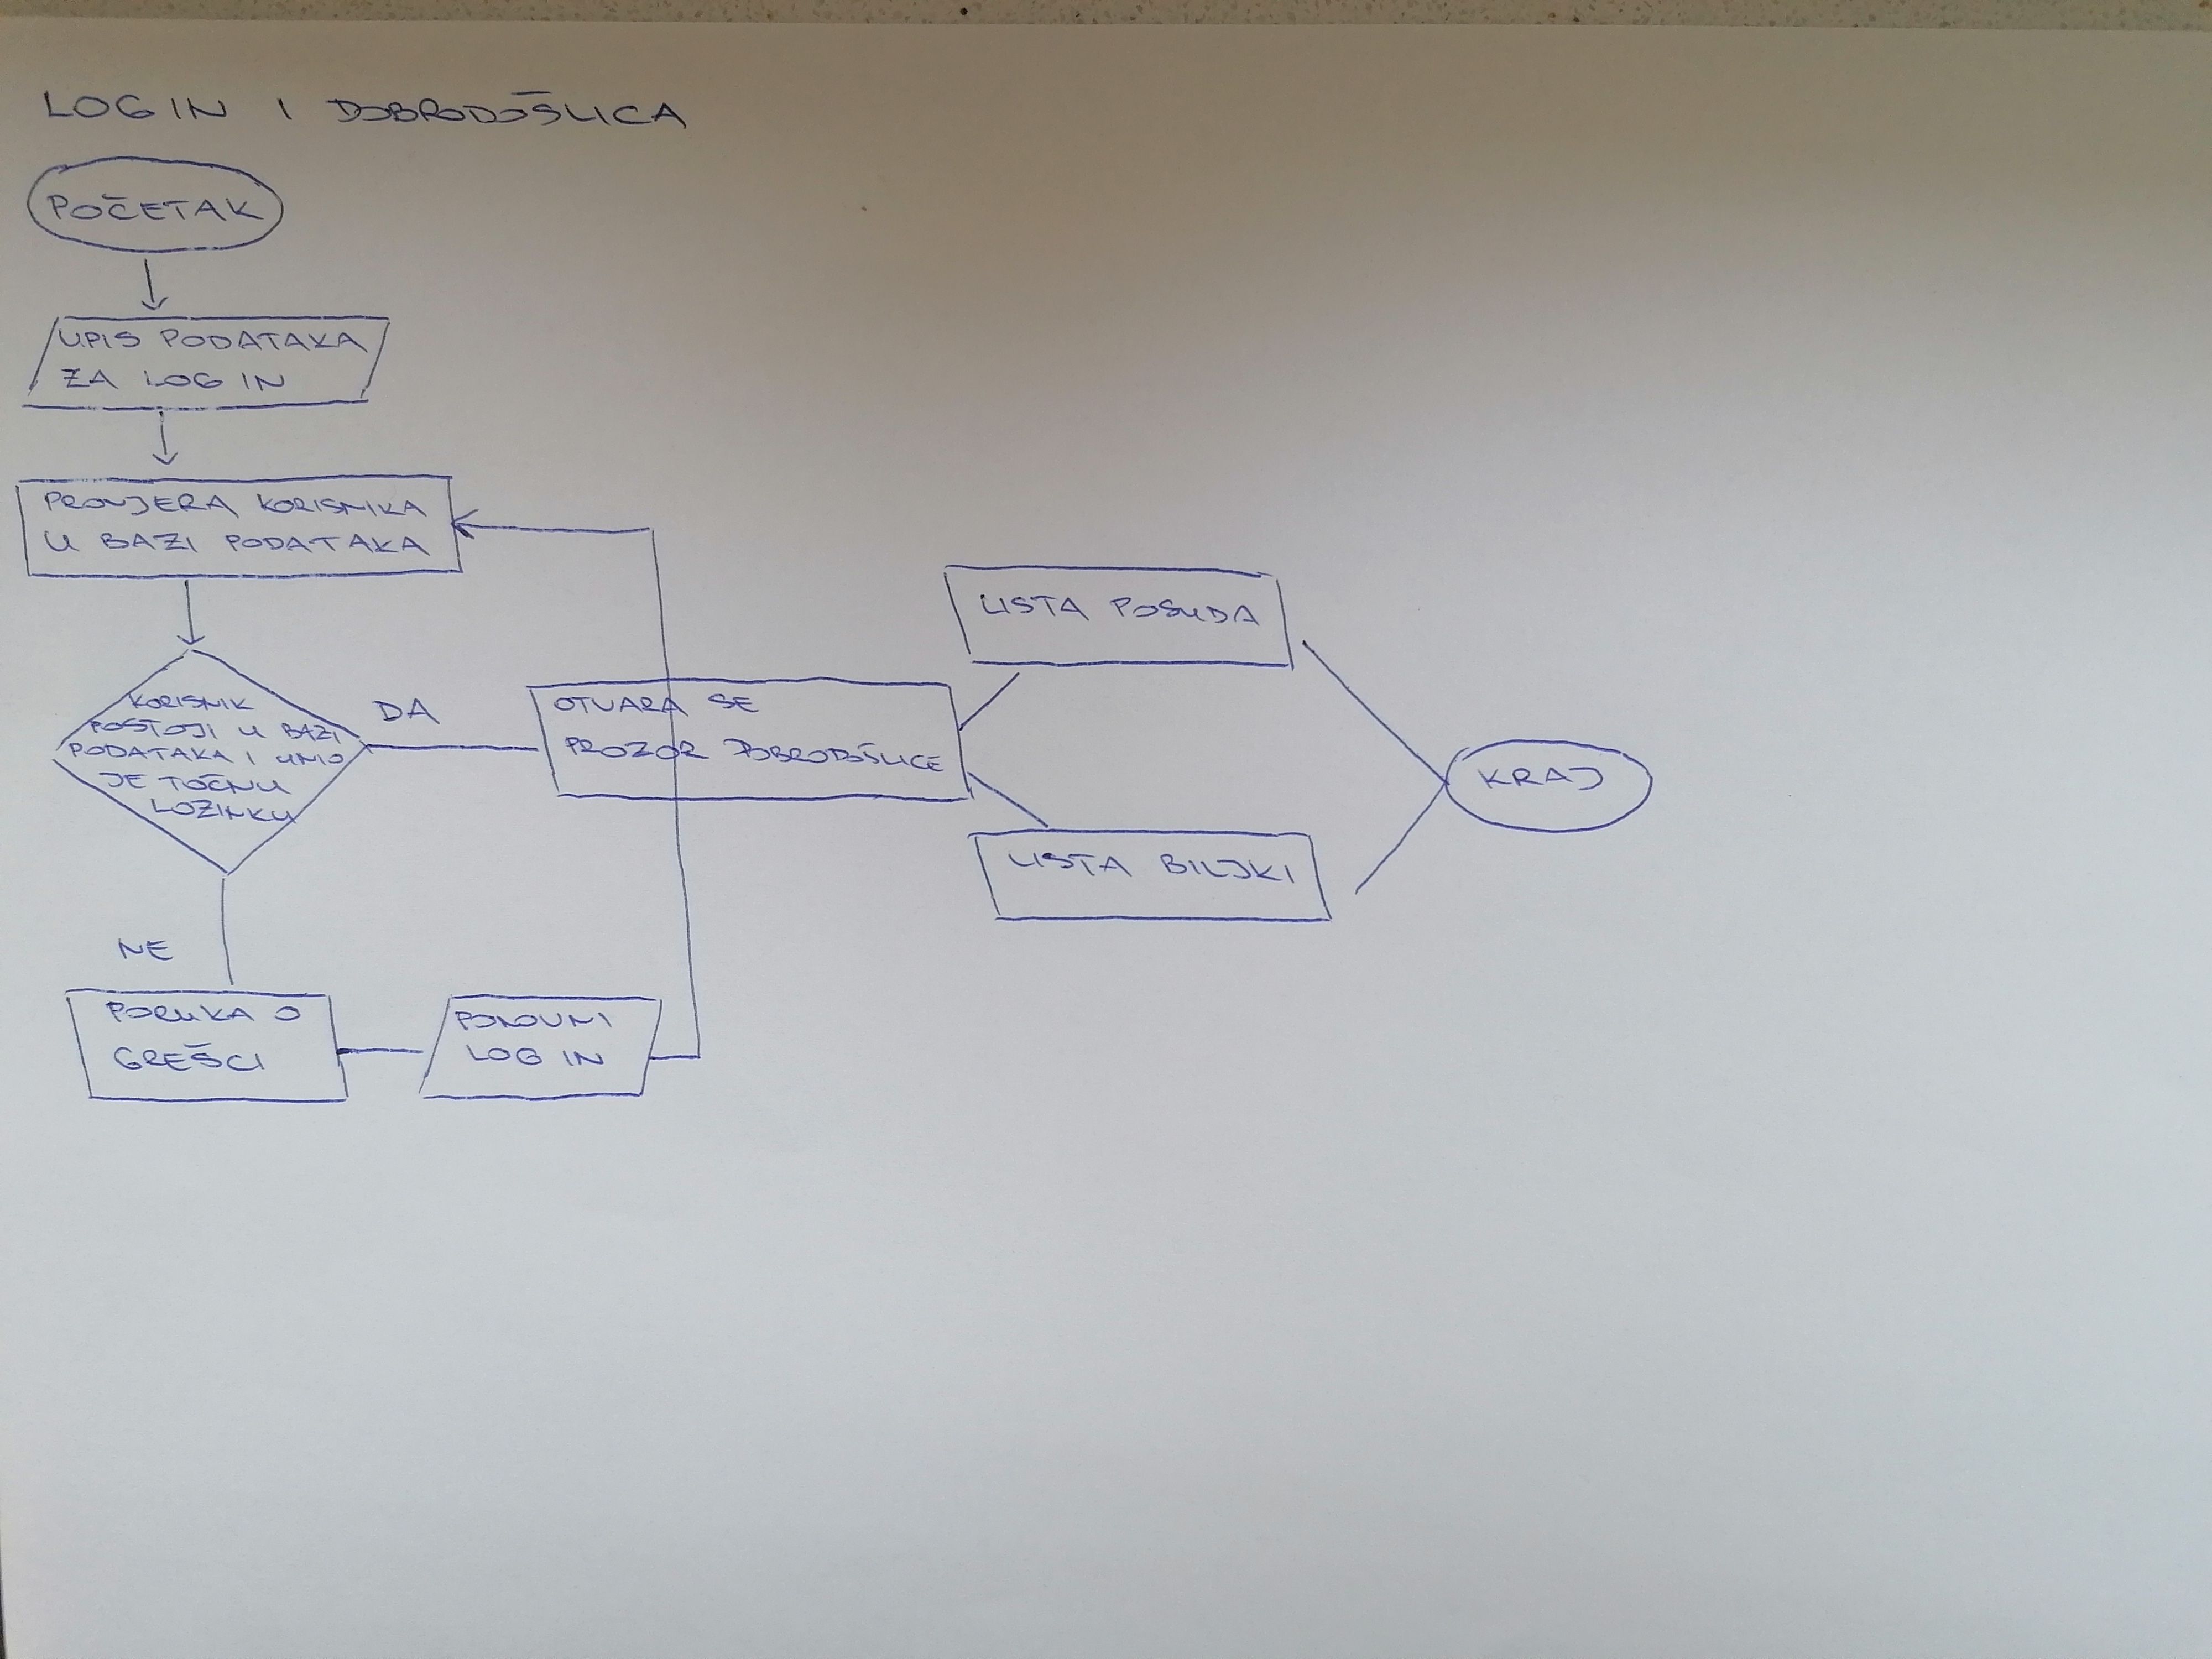 LOG IN I DOBRODOŠLICA
POČETAK
UPIS PODATAKA
ZA LOG IN
PROVJERA KORISNIKA
U BAZI PODATAKA
KORISNIK
POSTOJI U BAZI
PODATAKA I UNIO
JE TOČNU
LOZINKU
DA
OTVARA SE
PROZOR DOBRODOŠLICE
LISTA POSUDA
LISTA BILJKI
KRAJ
NE
PORUKA O
GREŠCI
PONOVNI
LOG IN